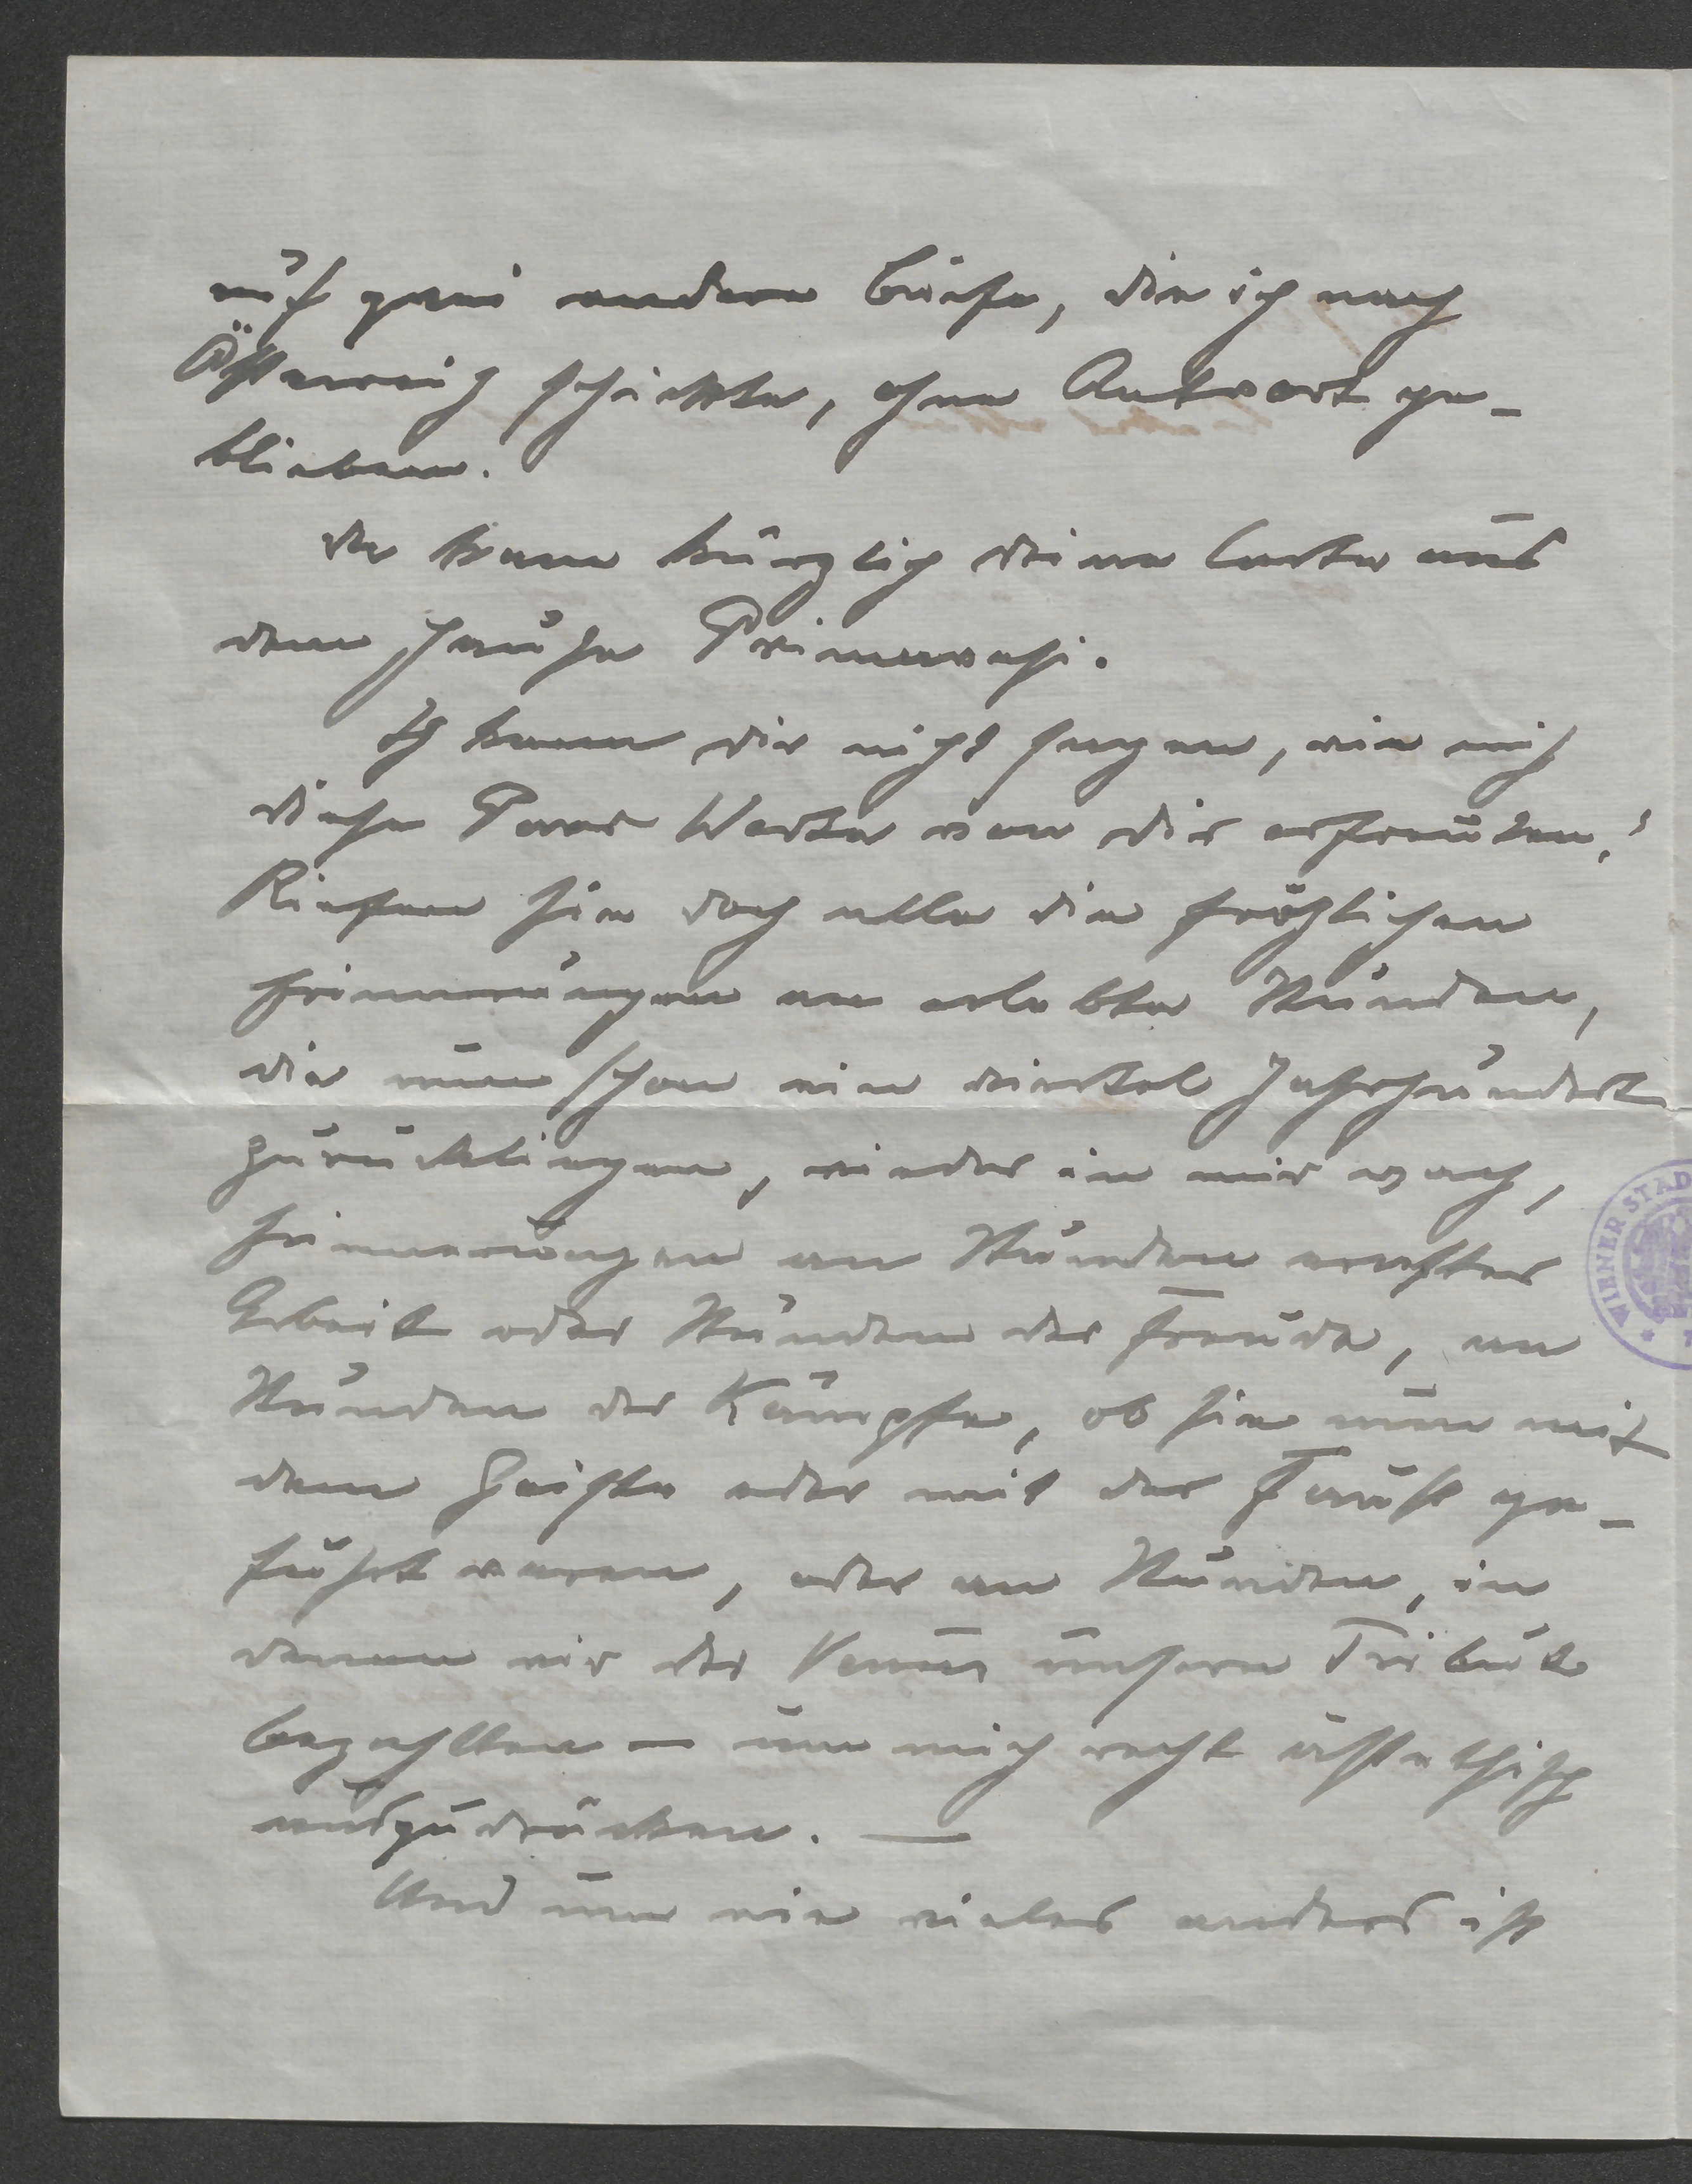 auf zwei andere Briefe, die ich nach
Österreich schickte, ohne Antwort ge-
blieben.
Da kam kürzlich deine Carte aus
dem Hause Primavesi.
Ich kann dir nicht sagen, wie mich
diese Paar Worte von dir erfreuten!
Riefen sie doch alle die fröhlichen
Erinnerungen an erlebte Stunden,
die nun schon ein viertel Jahrhundert
zurückliegen, wieder in mir wach,
Erinnerungen an Stunden ernster
Arbeit oder Stunden der Freude, an
Stunden der Kämpfe, ob sie nun mit
dem Geiste oder mit der Faust ge-
führt waren, oder an Stunden, in
denen wir der Venus unseren Tribut
bezahlten — um mich recht ästhetisch
auszudrücken. —
Und nun wie vieles anders ist
WIENER STAD